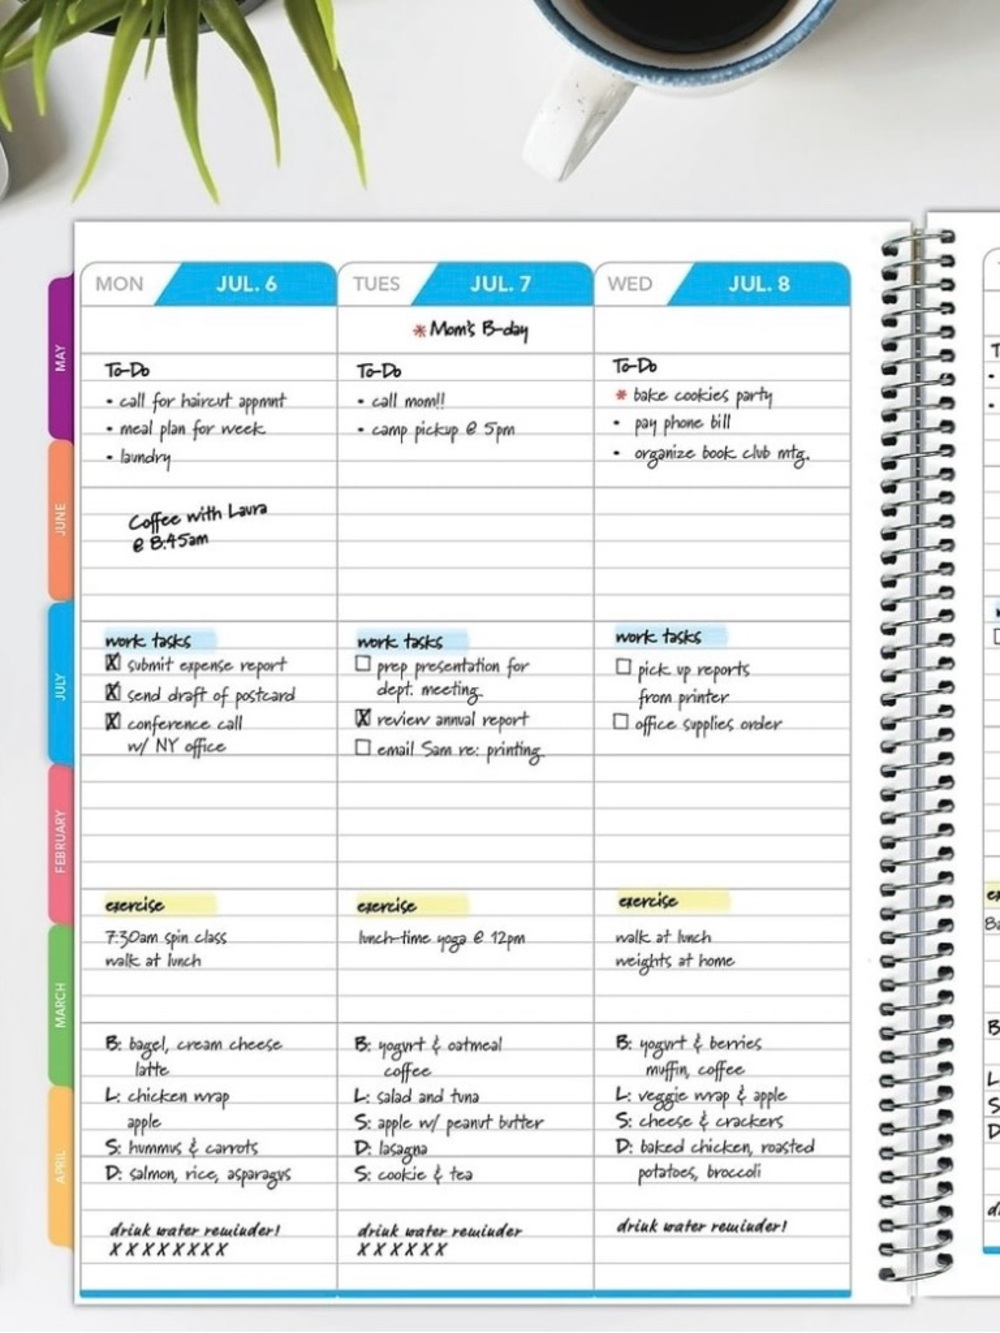 MON JUL. 6
To-Do
• call for haircut appmnt
• meal plan for week
• laundry
Coffee with Laura
@ 8:45am
work tasks
☒ submit expense report
☒ send draft of postcard
☒ conference call
w/ NY office
exercise
7:30am spin class
walk at lunch
B: bagel, cream cheese
latte
L: chicken wrap
apple
S: hummus & carrots
D: salmon, rice, asparagus
drink water reminder!
X X X X X X X X
TUES JUL. 7
* Mom's B-day
To-Do
• call mom!!
• camp pickup @ 5pm
work tasks
☐ prep presentation for
dept. meeting
☒ review annual report
☐ email Sam re: printing
exercise
lunch-time yoga @ 12pm
B: yogurt & oatmeal
coffee
L: salad and tuna
S: apple w/ peanut butter
D: lasagna
S: cookie & tea
drink water reminder
X X X X X X
WED JUL. 8
To-Do
* bake cookies party
• pay phone bill
• organize book club mtg.
work tasks
☐ pick up reports
from printer
☐ office supplies order
exercise
walk at lunch
weights at home
B: yogurt & berries
muffin, coffee
L: veggie wrap & apple
S: cheese & crackers
D: baked chicken, roasted
potatoes, broccoli
drink water reminder!
MAY
JUNE
JULY
FEBRUARY
MARCH
APRIL
B
L
S
D